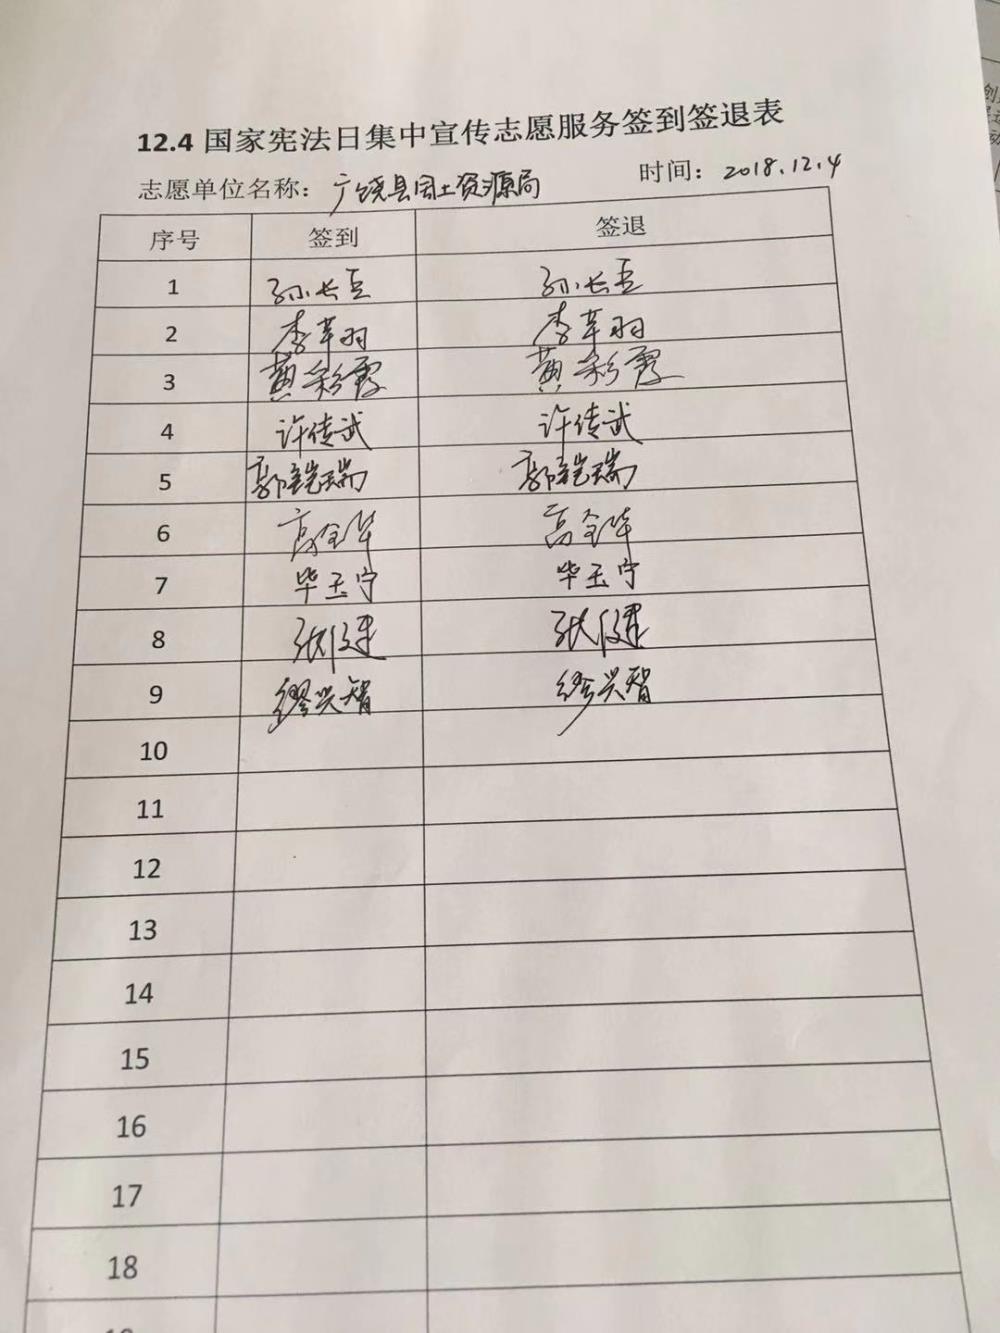 12.4 国家宪法日集中宣传志愿服务签到签退表
志愿单位名称：广饶县国土资源局 时间：2018.12.4
序号 签到 签退
1 孙长
2 李
3 黄彩霞 黄彩霞
4 许传武 许传武
5 郭瑞 郭瑞
6 高全华 高全华
7 毕玉宁 毕玉宁
8 张健 张健
9 缪兴智 缪兴智
10
11
12
13
14
15
16
17
18